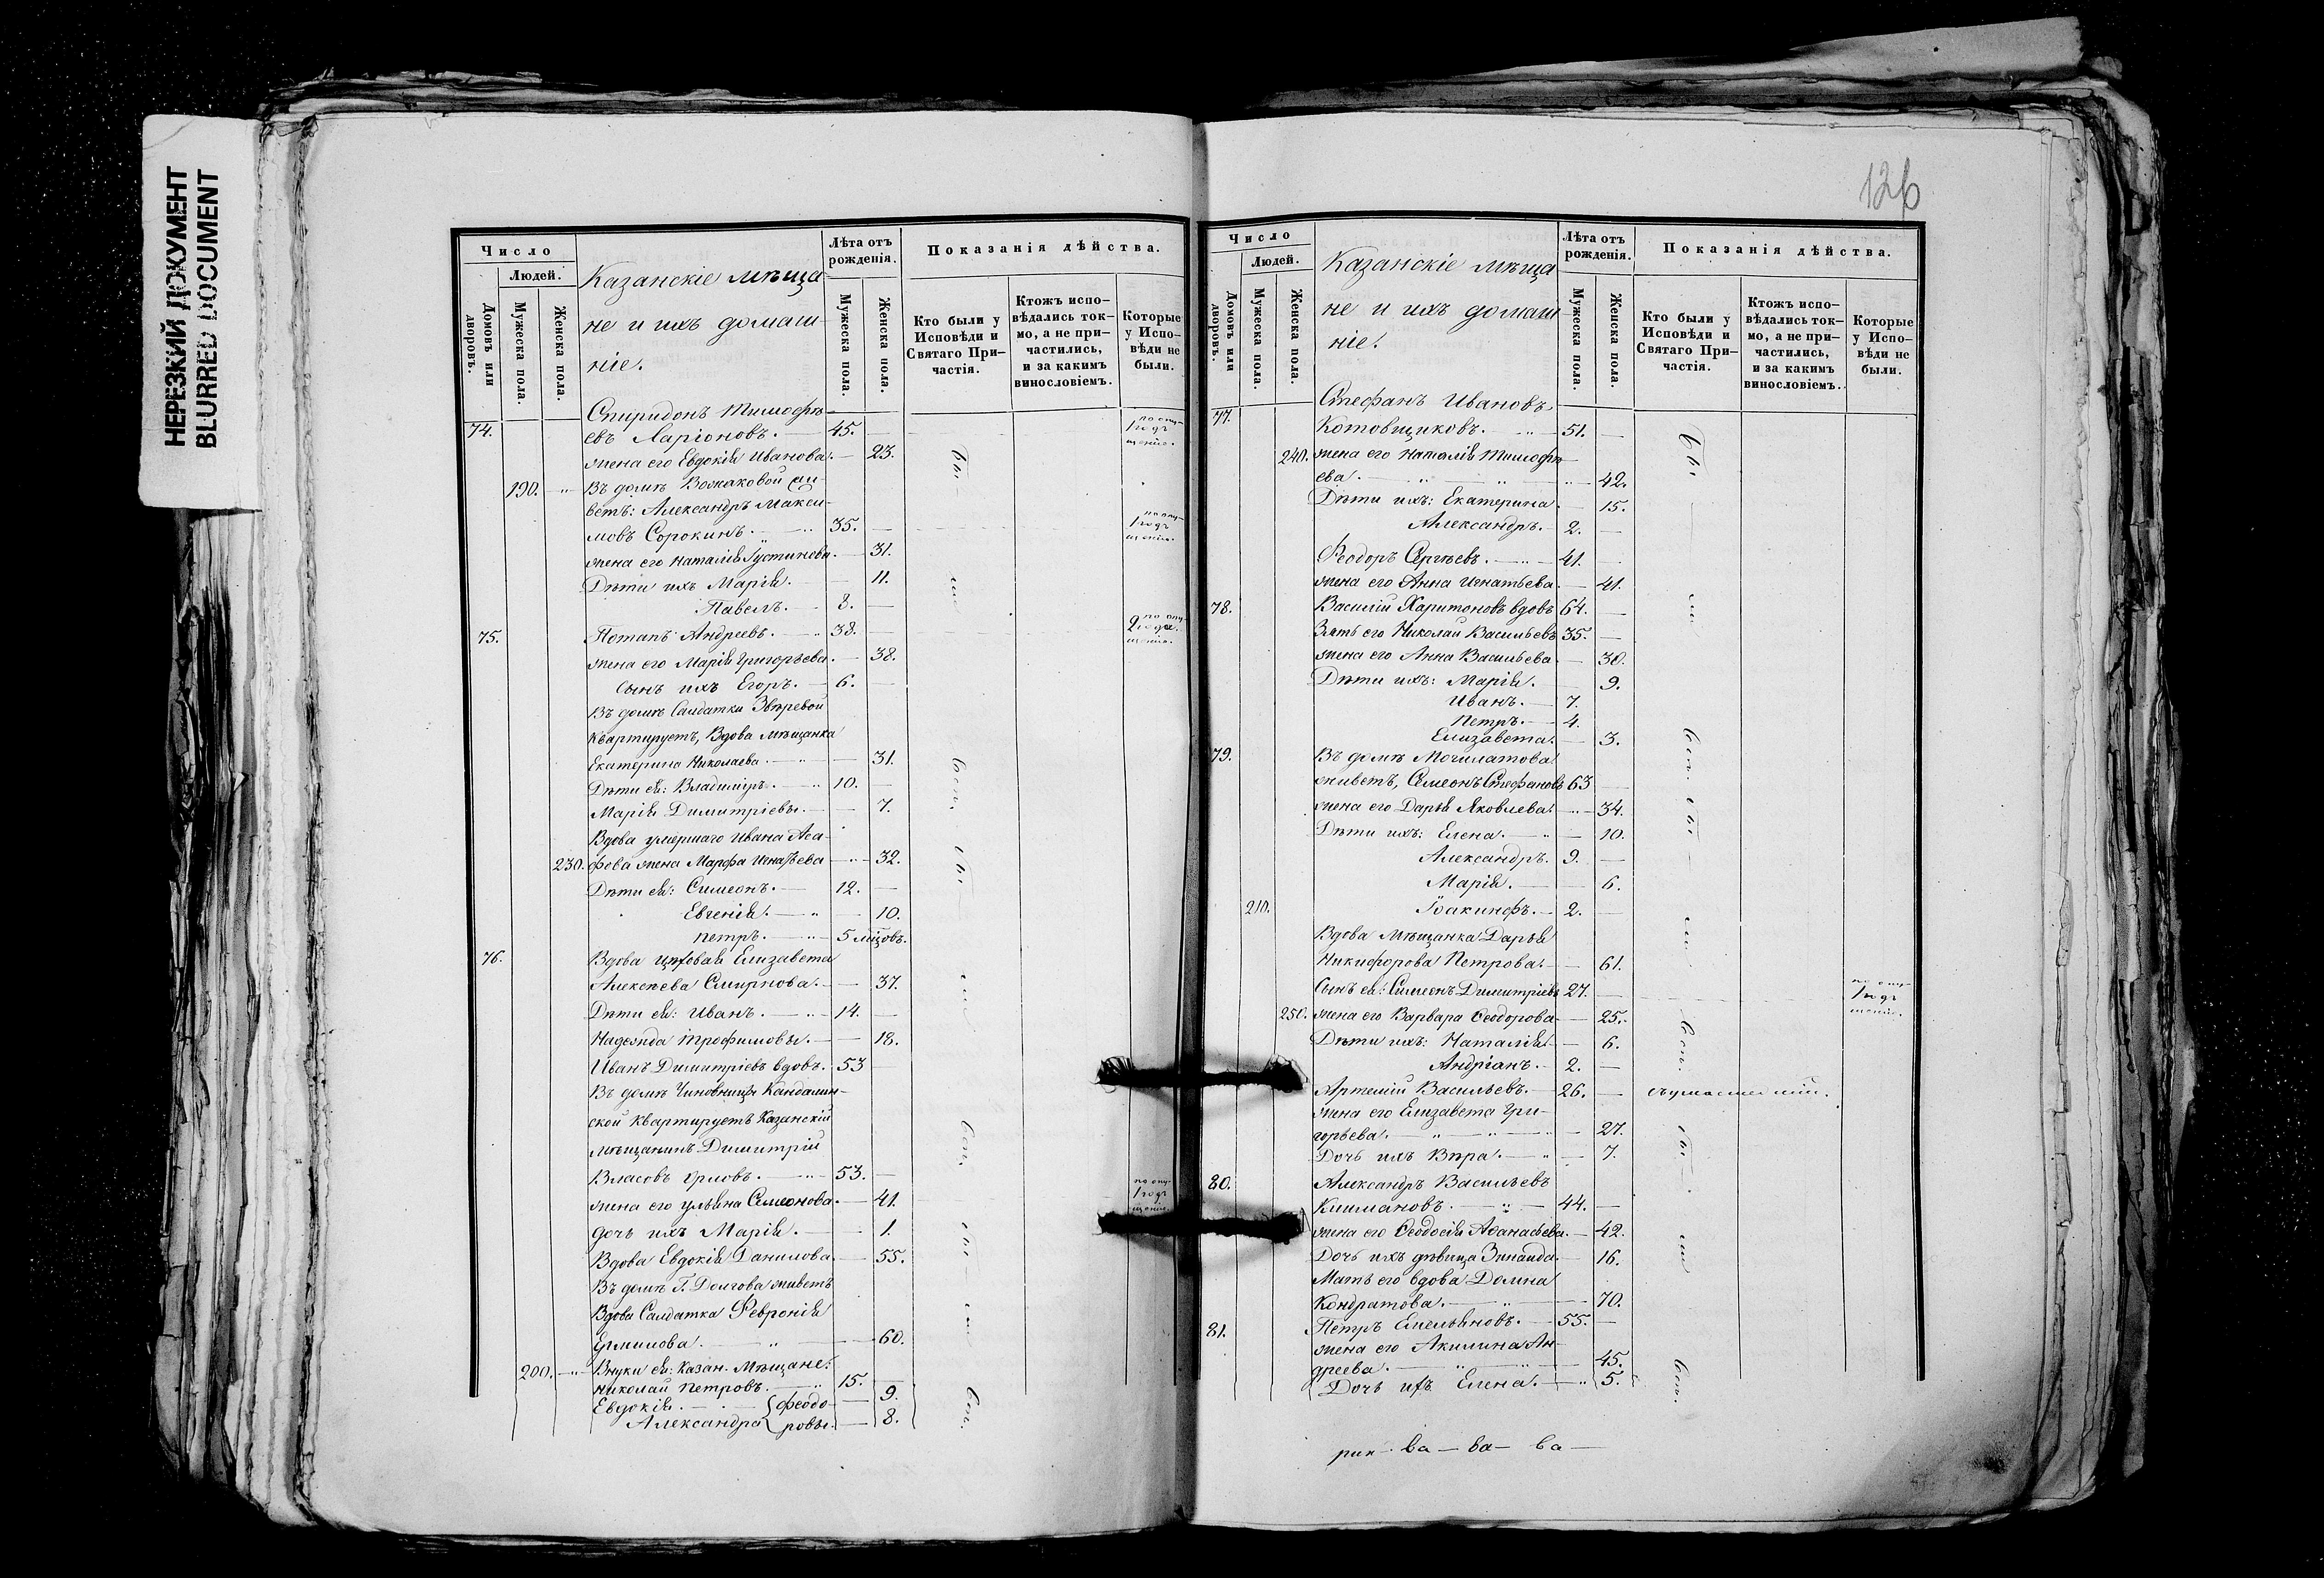 НЕРЕЗКИЙ ДОКУМЕНТ
BLURRED DOCUMENT
Число
Людей.
Домовъ или дворовъ.
Мужеска пола.
Женска пола.
Казанскіе мѣща-
не и ихъ домаш-
ніе.
Лѣта отъ рожденія.
Мужеска пола.
Женска пола.
Показанія дѣйства.
Кто были у Исповѣди и Святаго При-частія.
Ктожъ испо-вѣдались ток-мо, а не при-частились, и за какимъ винословіемъ.
Которые у Испо-вѣди не были.
Спиридонъ Тимофѣ-
74. евъ Ларіоновъ. 45. 1 годъ по опу-щенію.
жена его Евдокія Иванова. 23.
190. Въ домѣ Вожаковой жи-
ветъ: Александръ Макси-
мовъ Сорокинъ. 35. 1 годъ по опу-щенію.
жена его Наталія Густинева. 31.
Дѣти ихъ Марія. 11.
Павелъ. 8.
75. Потапъ Андреевъ. 38. 2 года по опу-щенію.
жена его Марія Григорьева. 38.
Сынъ ихъ Егоръ. 6.
Въ домѣ Салдатки Звѣревой
квартируетъ, Вдова мѣщанка
Екатерина Николаева. 31.
Дѣти ея: Владиміръ. 10.
Марія Димитріевы. 7.
Вдова умершаго Ивана Аѳа-
230. фова жена Марфа Игнатьева 32.
Дѣти ея: Симеонъ. 12.
Евгенія. 10.
Петръ. 5 мѣцовъ.
76. Вдова цѣховая Елизавета
Алексѣева Смирнова. 37.
Дѣти ея: Иванъ. 14.
Надежда Трофимовы. 18.
Иванъ Димитріевъ вдовъ. 53
Въ домѣ Чиновницы Кандалин-
ской квартируетъ Казанскій
мѣщанинъ Димитрій
Власовъ Орловъ. 53.
жена его Ульяна Семеонова. 41. 1 годъ по опу-щенію.
дочь ихъ Марія. 1.
Вдова Евдокія Данилова. 55.
Въ домѣ Г. Долгова живетъ
Вдова Салдатка Февронія
Ермилова. 60.
200. Внуки ея: Казан. Мѣщане:
Николай Петровъ. 15.
Евдокія. Феодо- 9.
Александра ровы. 8.
126
Число
Людей.
Домовъ или дворовъ.
Мужеска пола.
Женска пола.
Казанскіе мѣща
не и ихъ домаш
ніе.
Лѣта отъ рожденія.
Мужеска пола.
Женска пола.
Показанія дѣйства.
Кто были у Исповѣди и Святаго При-частія.
Ктожъ испо-вѣдались ток-мо, а не при-частились, и за какимъ винословіемъ.
Которые у Испо-вѣди не были.
Стефанъ Ивановъ
77. Котовщиковъ. 51.
240. жена его Наталія Тимофѣ-
ева. 42.
Дѣти ихъ: Екатерина. 15.
Александръ. 2.
Феодоръ Сергѣевъ. 41.
жена его Анна Игнатьева. 41.
78. Василій Харитоновъ вдовъ 64.
Зять его Николай Васильевъ 35.
жена его Анна Васильева. 30.
Дѣти ихъ: Марія. 9.
Иванъ. 7.
Петръ. 4.
Елизавета. 3.
79. Въ домѣ Мочилатова
живетъ, Семеонъ Стефановъ 63
жена его Дарья Яковлева. 34.
Дѣти ихъ: Елена. 10.
Александръ. 9.
Марія. 6.
210. Іоакинфъ. 2.
Вдова Мѣщанка Дарья
Никифорова Петрова. 61.
Сынъ ея: Симеонъ Димитріевъ 27. 1 годъ по опу-щенію.
250. жена его Варвара Ѳеодорова 25.
Дѣти ихъ: Наталія. 6.
Андріанъ. 2.
Артемій Васильевъ. 26. съумасшедшій.
жена его Елизавета Гри-
горьева. 27.
Дочь ихъ Вѣра. 7.
80. Александръ Васильевъ
Кишмановъ. 44.
жена его Ѳеодосія Аѳанасьева. 42.
Дочь ихъ дѣвица Зинаида. 16.
Мать его вдова Домна
Кондратова. 70.
81. Петръ Емельяновъ. 55.
жена его Акилина Ан-
дреева. 45.
Дочь ихъ Елена. 5.
рик-ва-ва-ва-